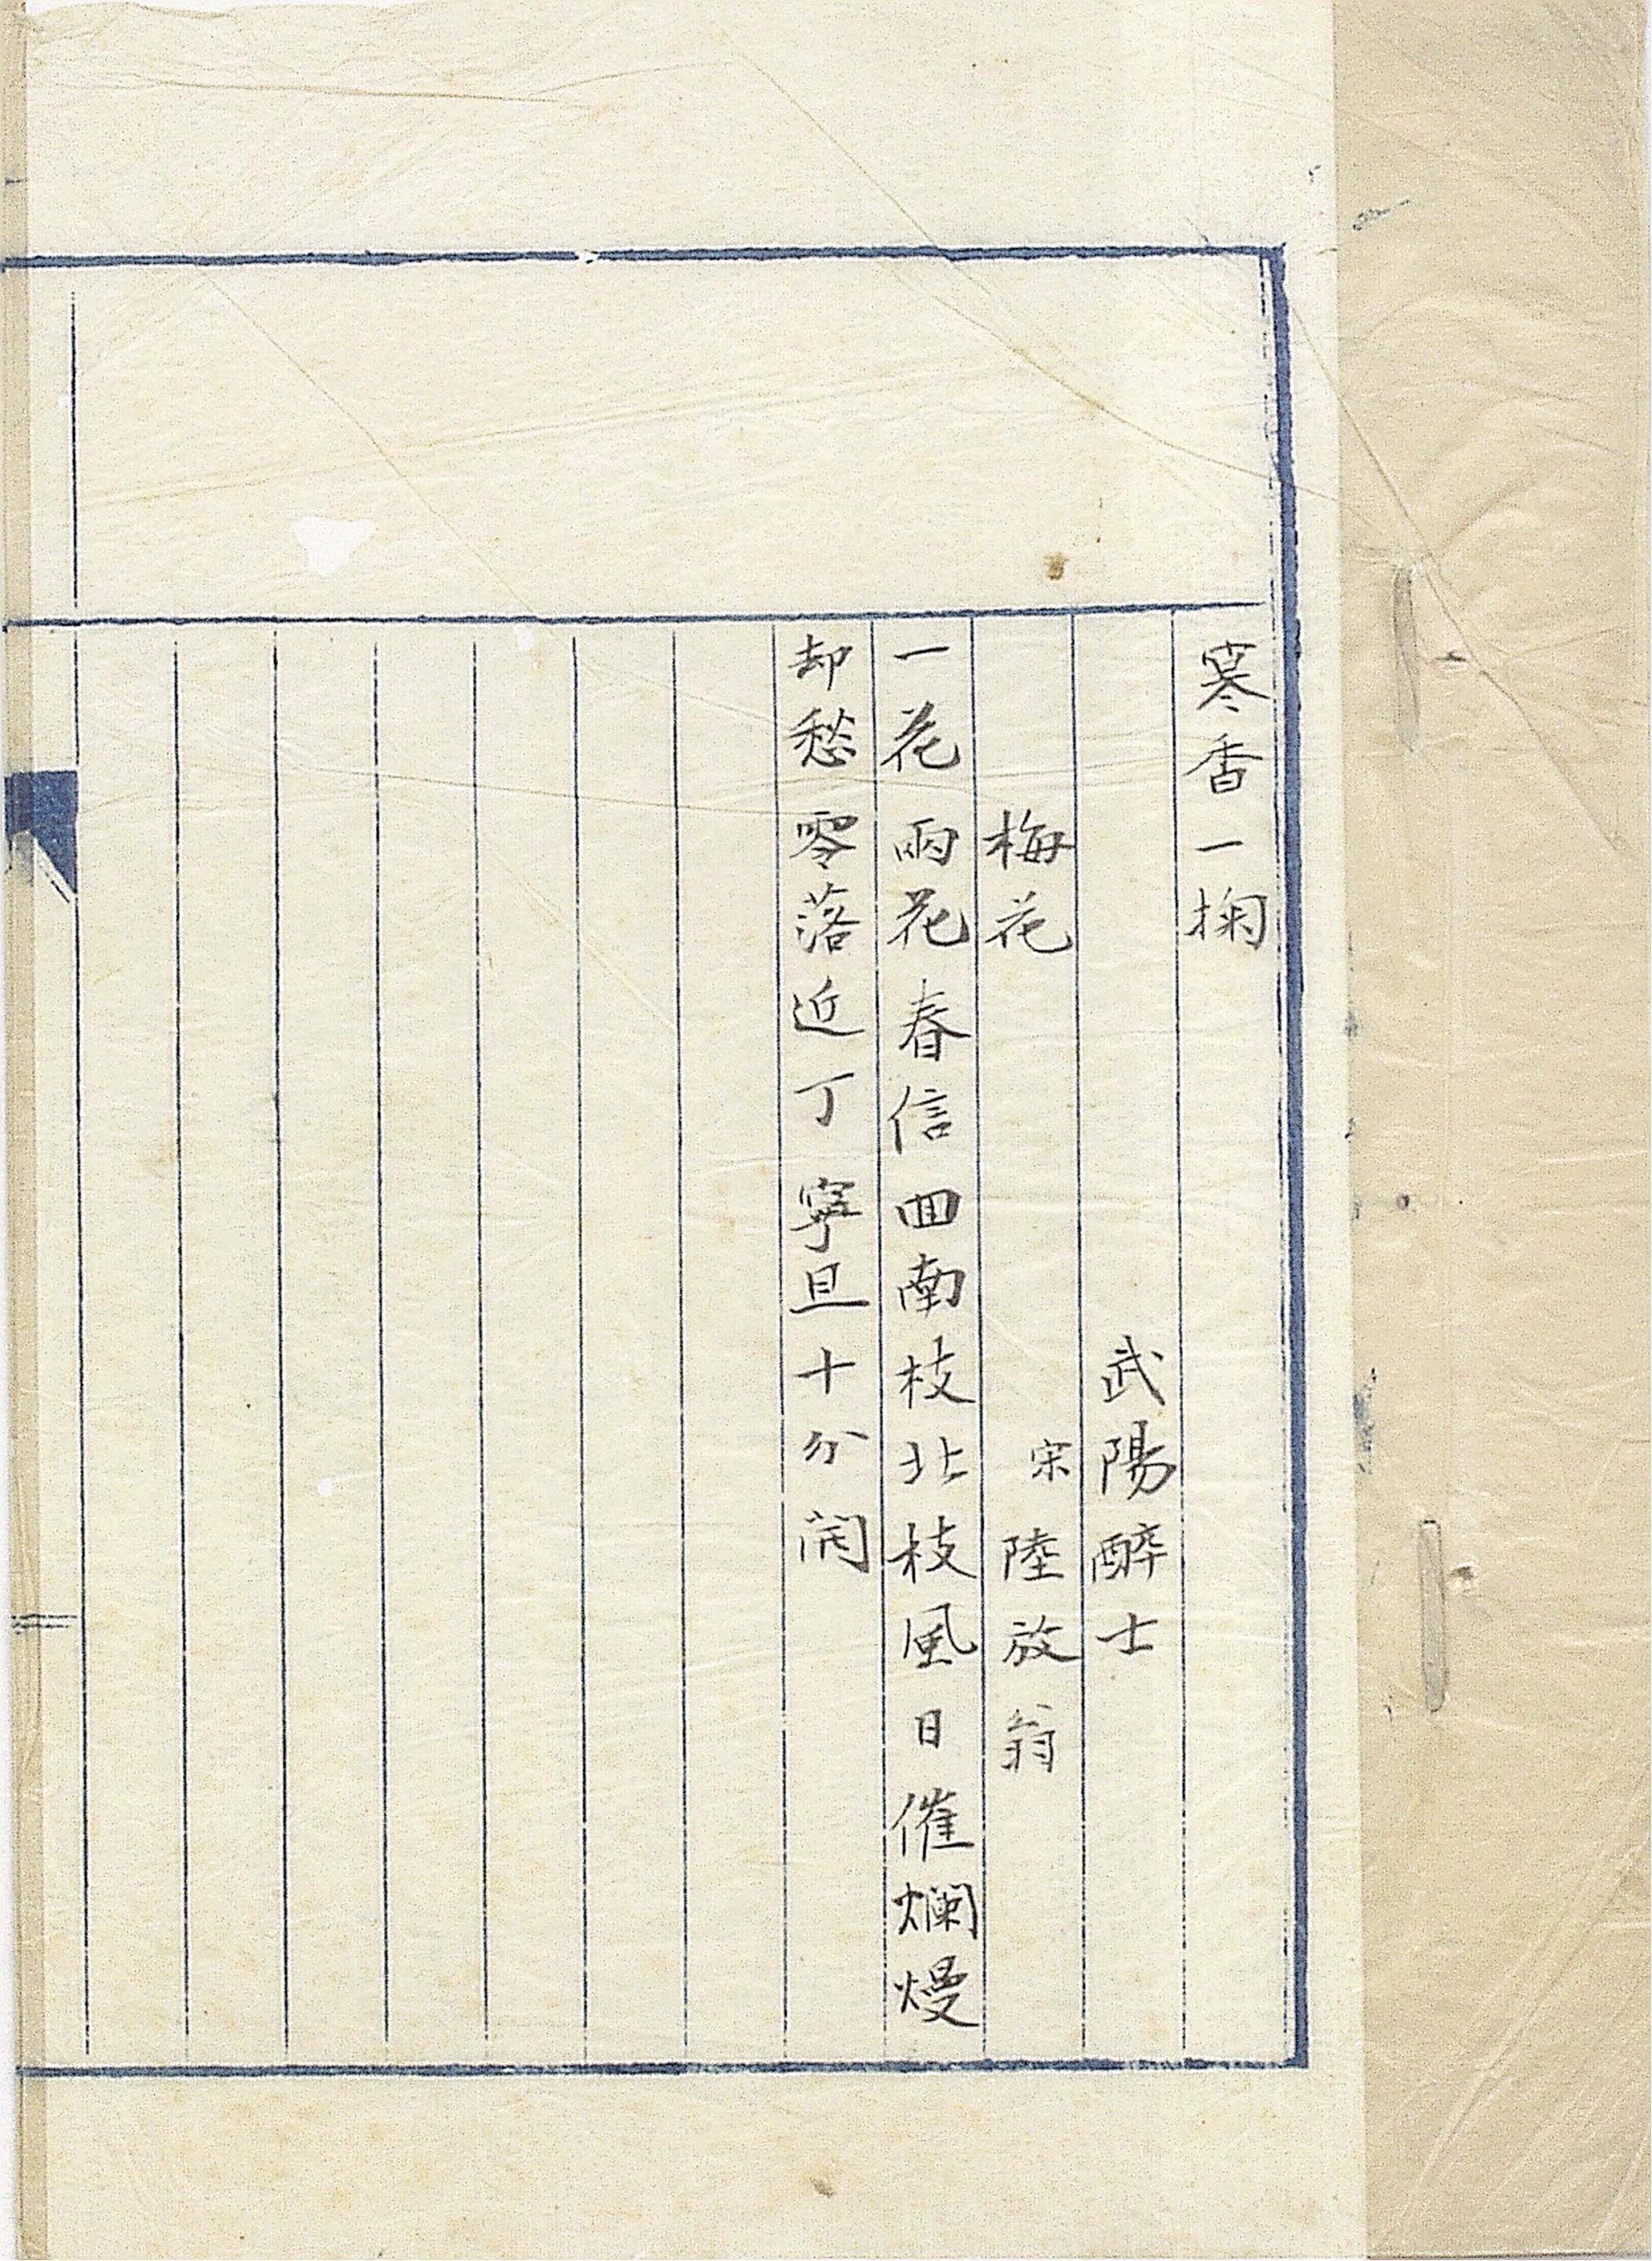 寒香一掬
武陽醉士
梅花 宋 陸放翁
一花兩花春信回南枝北枝風日催爛熳
却愁零落近丁寧且十分開